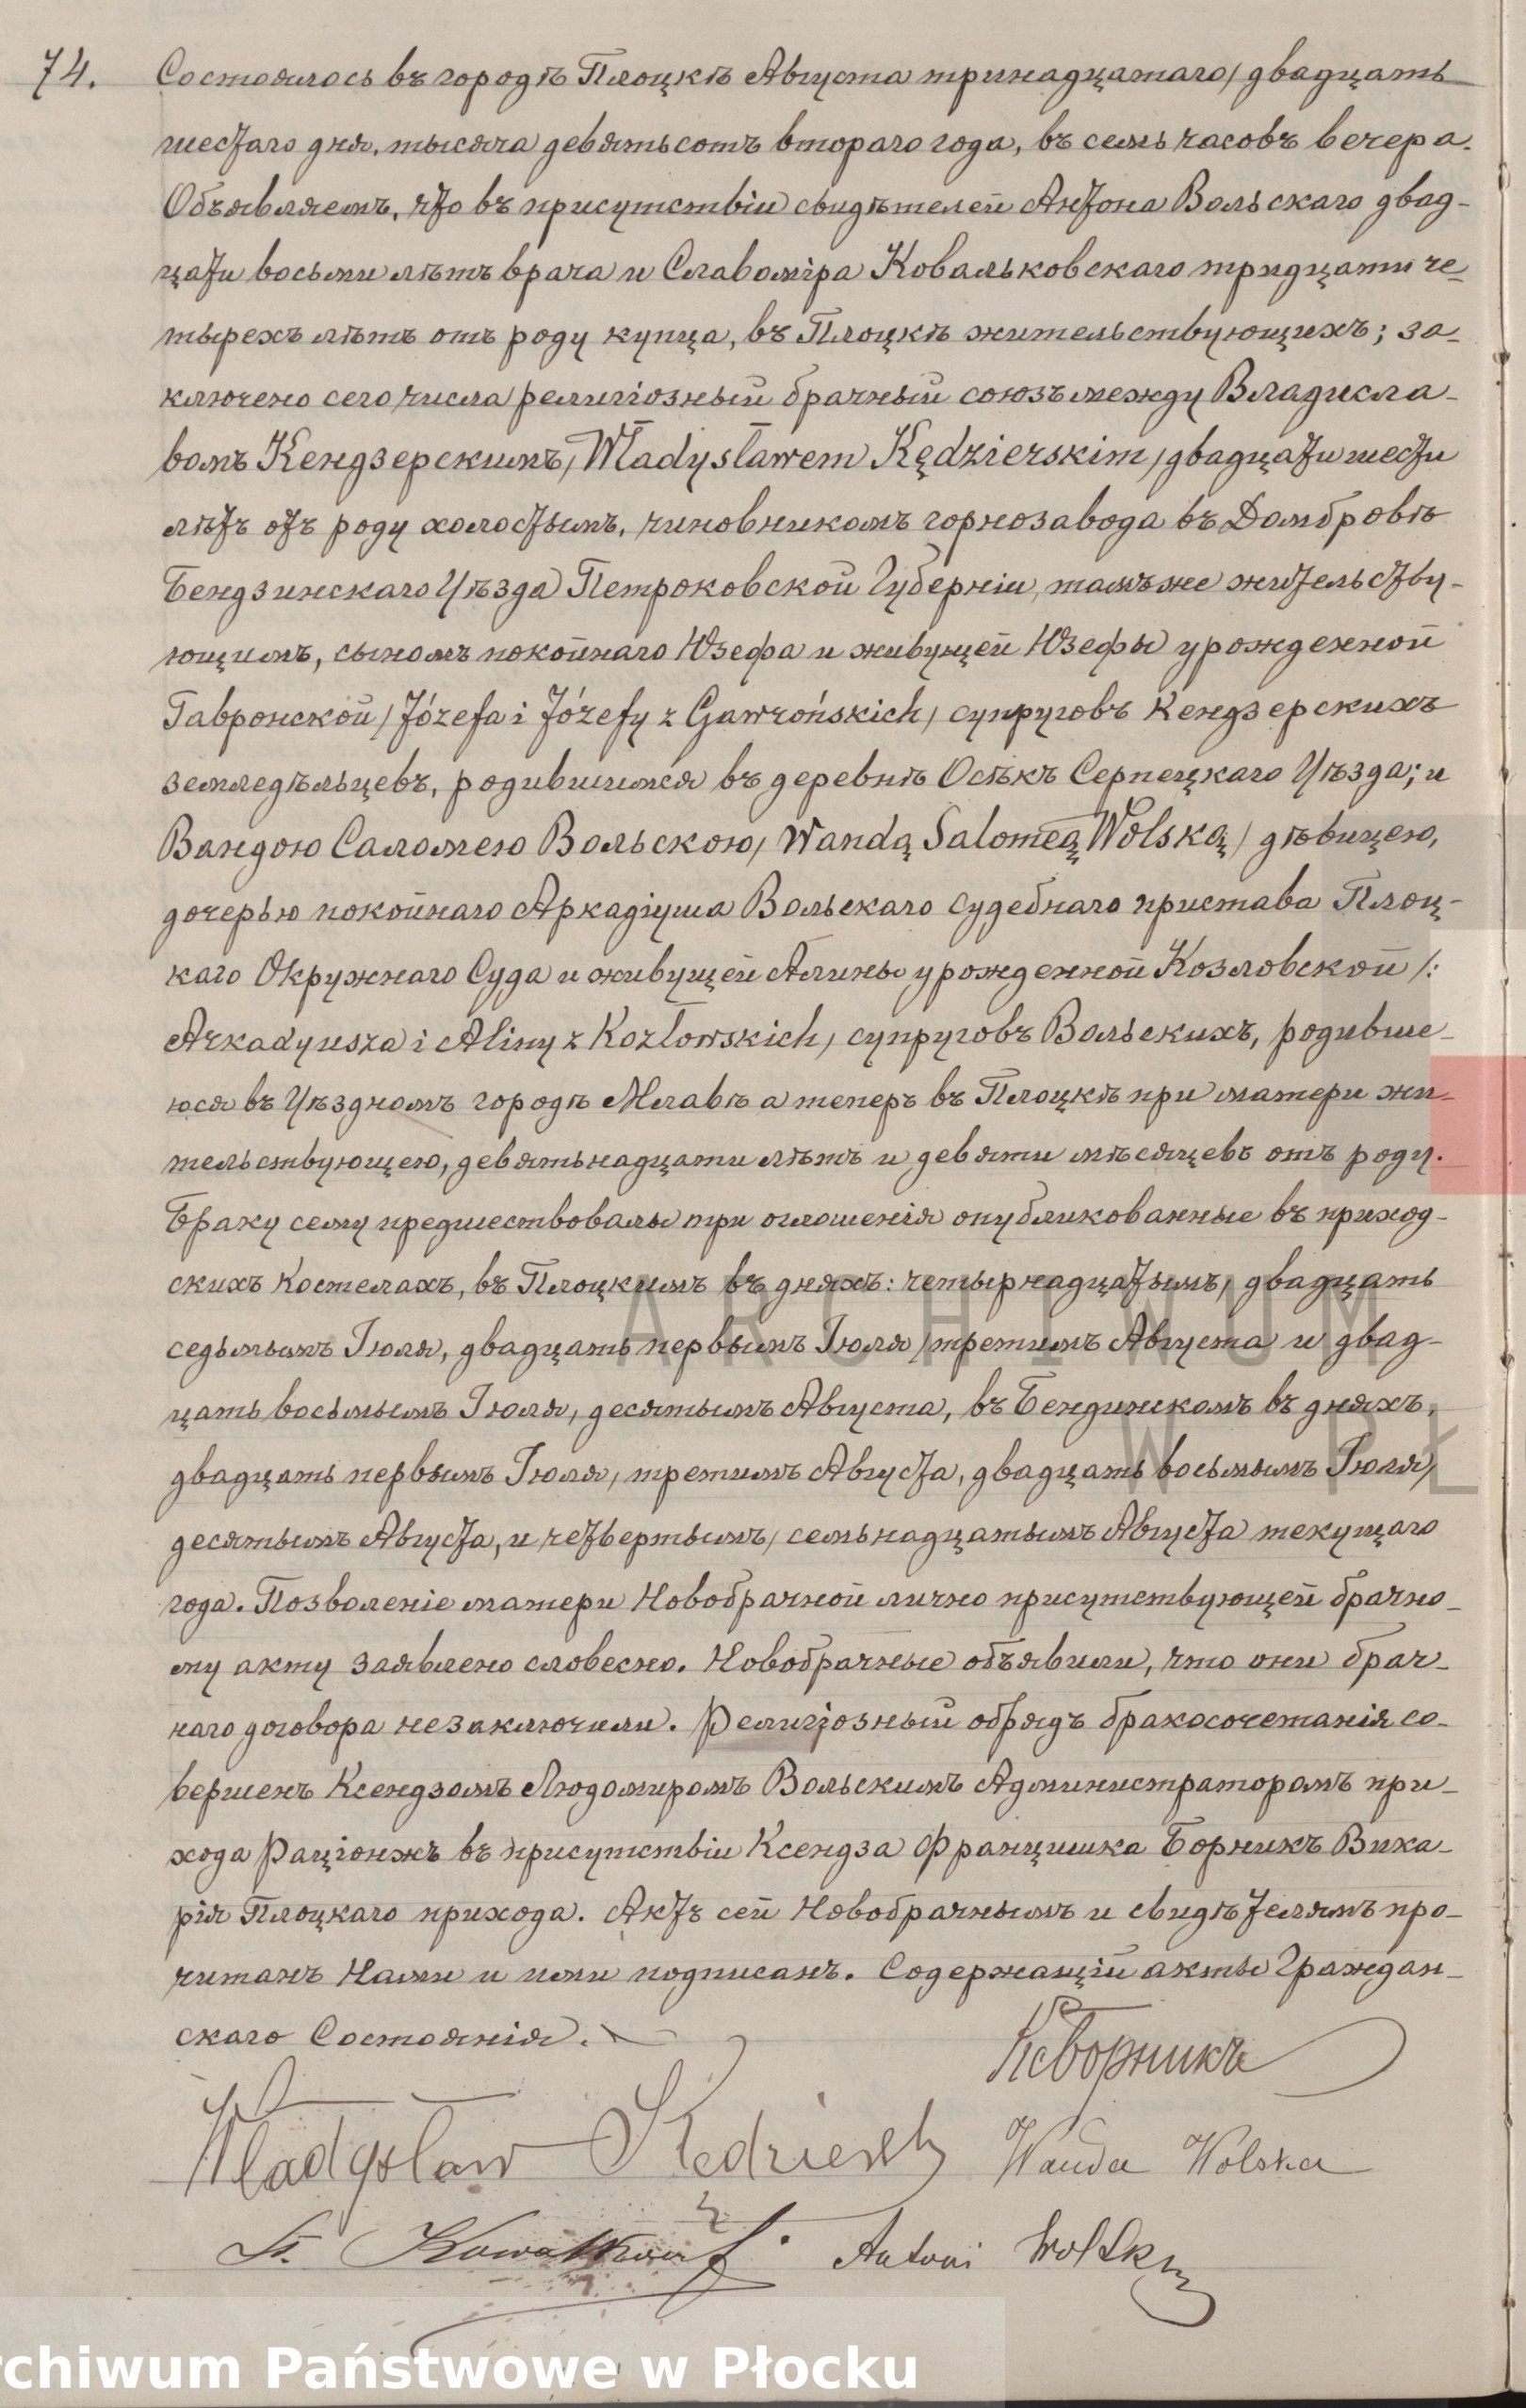 74. Состоялось въ городѣ Плоцкѣ Августа тринадцатаго/двадцать
шестаго дня, тысяча девятьсотъ втораго года, въ семь часовъ вечера.
Объявляемъ, что въ присутствіи свидѣтелей Антона Вольскаго двад-
цати восьми лѣтъ врача и Славоміра Ковальковскаго тридцати че-
тырехъ лѣтъ отъ роду купца, въ Плоцкѣ жительствующихъ; за-
ключено сего числа религіозный брачный союзъ между Владисла-
вомъ Кендзерскимъ, /Władysławem Kędzierskim/ двадцати шести
лѣтъ отъ роду холостымъ, чиновникомъ горнозавода въ Домбровѣ
Бендзинскаго Уѣзда Петроковской Губерніи, тамъ же жительству-
ющимъ, сыномъ покойнаго Юзефа и живущей Юзефы урожденной
Гавронской /Józefa i Józefy z Gawrońskich/ супруговъ Кендзерскихъ
земледѣльцевъ, родившимся въ деревнѣ Осѣкъ Серпецкаго Уѣзда; и
Вандою Саломею Вольскою, /Wandą Salomeą Wolską/ дѣвицею,
дочерью покойнаго Аркадіуша Вольскаго судебнаго пристава Плоц-
каго Окружнаго Суда и живущей Алины урожденной Козловской /:
Arkadyusza i Aliny z Kozłowskich/ супруговъ Вольскихъ, родивше-
юся въ Уѣздномъ городѣ Млавѣ а теперъ въ Плоцкѣ при матери жи-
тельствующею, девятьнадцати лѣтъ и девяти мѣсяцевъ отъ роду.
Браку сему предшествовалы три оглошенія опубликованные въ приход-
скихъ костелахъ, въ Плоцкимъ въ дняхъ: четырнадцатымъ/двадцать
седьмымъ Іюля, двадцать первымъ Іюля/третимъ Августа и двад-
цать восьмымъ Іюля/десятымъ Августа, въ Бендинскомъ въ дняхъ,
двадцать первымъ Іюля/третимъ Августа, двадцать восьмымъ Іюля/
десятымъ Августа, и четвертымъ/семьнадцатымъ Августа текущаго
года. Позволеніе матери Новобрачной лично присутствующей брачно-
му акту заявлено словесно. Новобрачные объявили, что они брач-
наго договора незаключили. Религіозный обрядъ бракосочетанія со-
вершенъ Ксендзомъ Людомиромъ Вольскимъ Администраторомъ при-
хода Раціонжъ въ присутствіи Ксендза Францишка Борникъ Вика-
рія Плоцкаго прихода. Актъ сей Новобрачнымъ и свидѣтелямъ про-
читанъ Нами и ими подписанъ. Содержащій акты Граждан-
скаго Состоянія.
Кс Борникъ
Władysław Kędzierski Wanda Wolska
Kowalkowski Antoni Wolski
ARCHIWUM
W PŁ
rchiwum Państwowe w Płocku